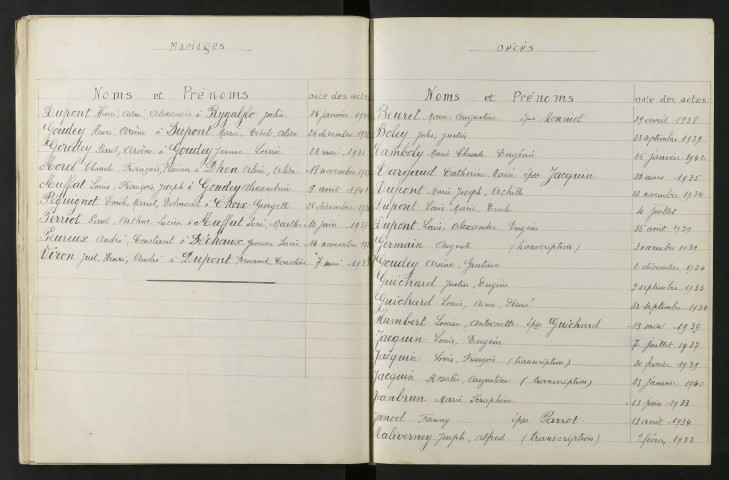 Mariages
Noms et Prénoms Date des actes
Dupont Henri, Aimé, Alexandre à Rygalflo Julia 26 janvier
Goudey Henri, Arsène à Dupont Marie, Cécile, Alice 26 décembre
Gorodey Paul, Arsène à Goudey Jeanne, Louise 23 mai 1931
Morel Claude, François, à Dhen Aline, Alice 18 novembre
Muffat Louis, François, Joseph à Goudey Alexandrine 9 août 1941
Péquignot Emile, Marcel, Edmond à Choix Georgette 28 décembre
Perriot Paul, Arthur, Lucien à Muffat Marthe 12 juin 1937
Peureux André, Constant à Déchaux Yvonne, Lucie 14 novembre
Véron Joel, Henri, André à Dupont Caroline 7 mai
Décès
Noms et Prénoms Date des actes
Beuret Marie Augustine épse Monniot 29 avril 1938
Boley Jules, Justin 23 septembre 1939
Marie Claude Eugénie 25 janvier 1942
Dargaud Catherine Marie épse Jacquin 22 mars 1935
Dupont Marie Joseph, Achille 22 novembre 1934
Dupont Louis Marie, Emile 4 juillet
Dupont Louis, Alexandre Eugène 25 août 1939
Germain Auguste (transcription) novembre 1939
Goudey Arsène, Gustave 2 décembre 1934
Guichard Justin, Eugène 9 septembre 1933
Guichard Louis, Aimé, Désiré 22 septembre 1934
Humbert Louise, Antoinette épse Guichard 13 mai 1939
Jacquin Louis, Eugène 7 juillet 1937
Jacquin Louis, François (transcription) 20 février 1939
Jacquin Rosalie, Augustine (transcription) 23 janvier 1940
Jeanbrun Marie Séraphine 13 juin 1933
Janod Fanny épse Parrot 13 août 1934
Maliverney Joseph, Alfred (transcription) 1933